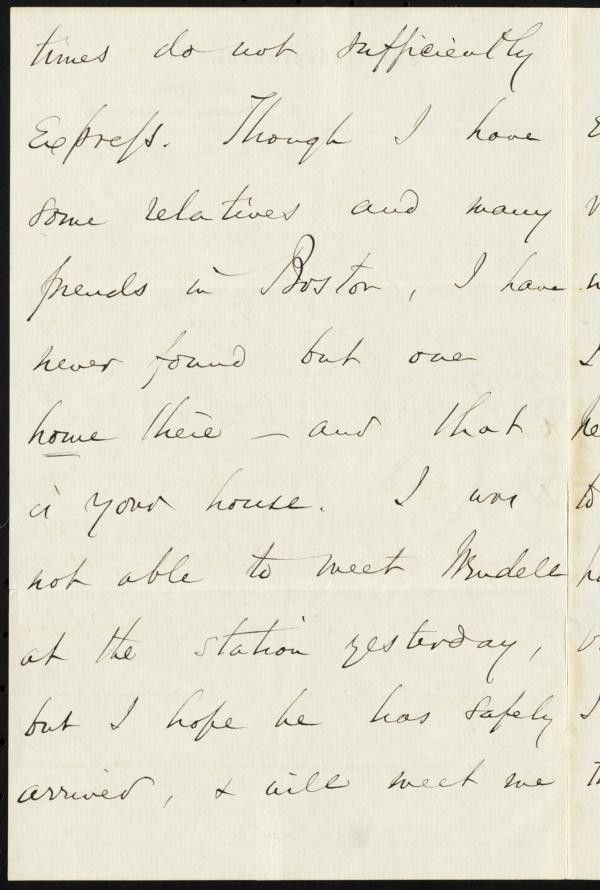 times do not sufficiently
Express. Though I have
some relatives and many
friends in Boston, I have
never found but one
home there — and that
is your house. I was
not able to meet Wendell
at the station yesterday,
but I hope he has safely
arrived, & will meet me